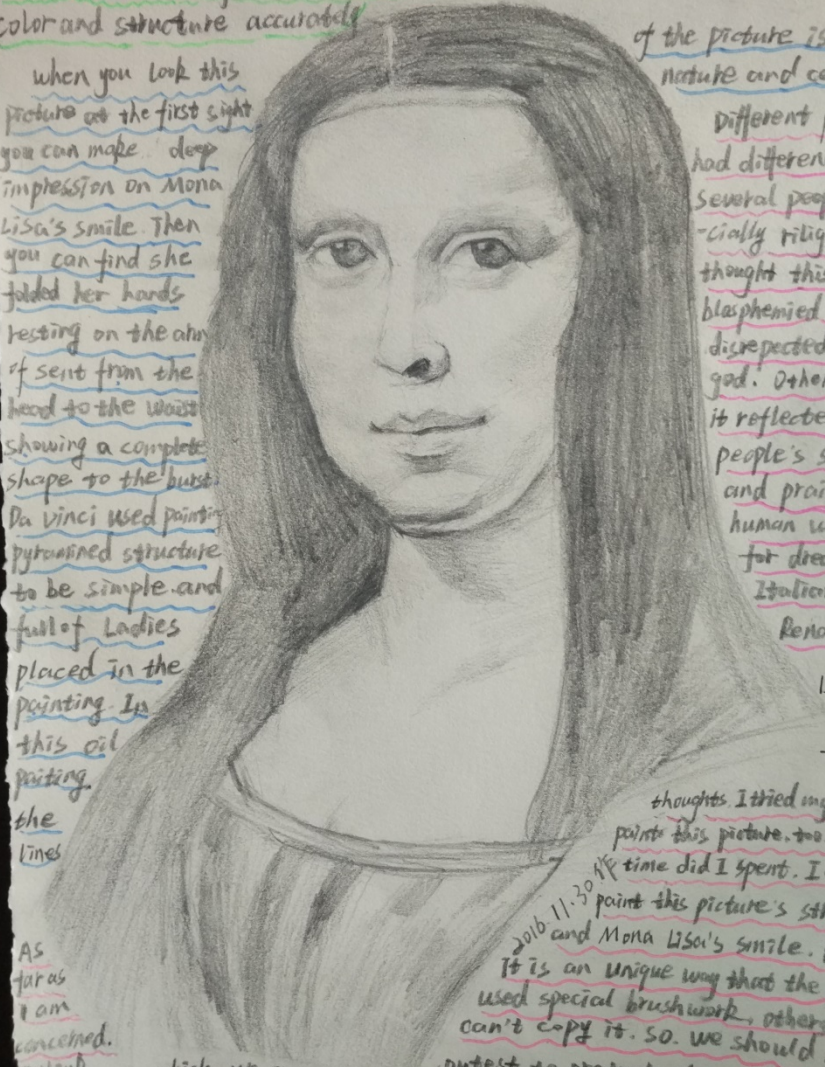 color and structure accurately
when you look this
picture at the first sight
you can make deep
impression on Mona
Lisa's smile. Then
you can find she
folded her hands
resting on the arm
of sent from the
head to the waist
showing a complete
shape to the burst.
Da vinci used painting
pyramined structure
to be simple.and
full of Ladies
placed in the
painting. In
this oil
paiting.
the
lines
As
far as
I am
concerned.
of the picture is
nature and co
Different p
had differen
several peop
-cially rilig
thought this
blasphemied
disrepected
god. Other
it reflecte
people's s
and prai
human w
for drea
Italia
Rena
thoughts. I tried my
paint this picture. too
time did I spent. I
paint this picture's str
and Mona Lisa's smile.
It is an unique way that the
used special brushwork, others
can't copy it. so. we should
2016.11.30作